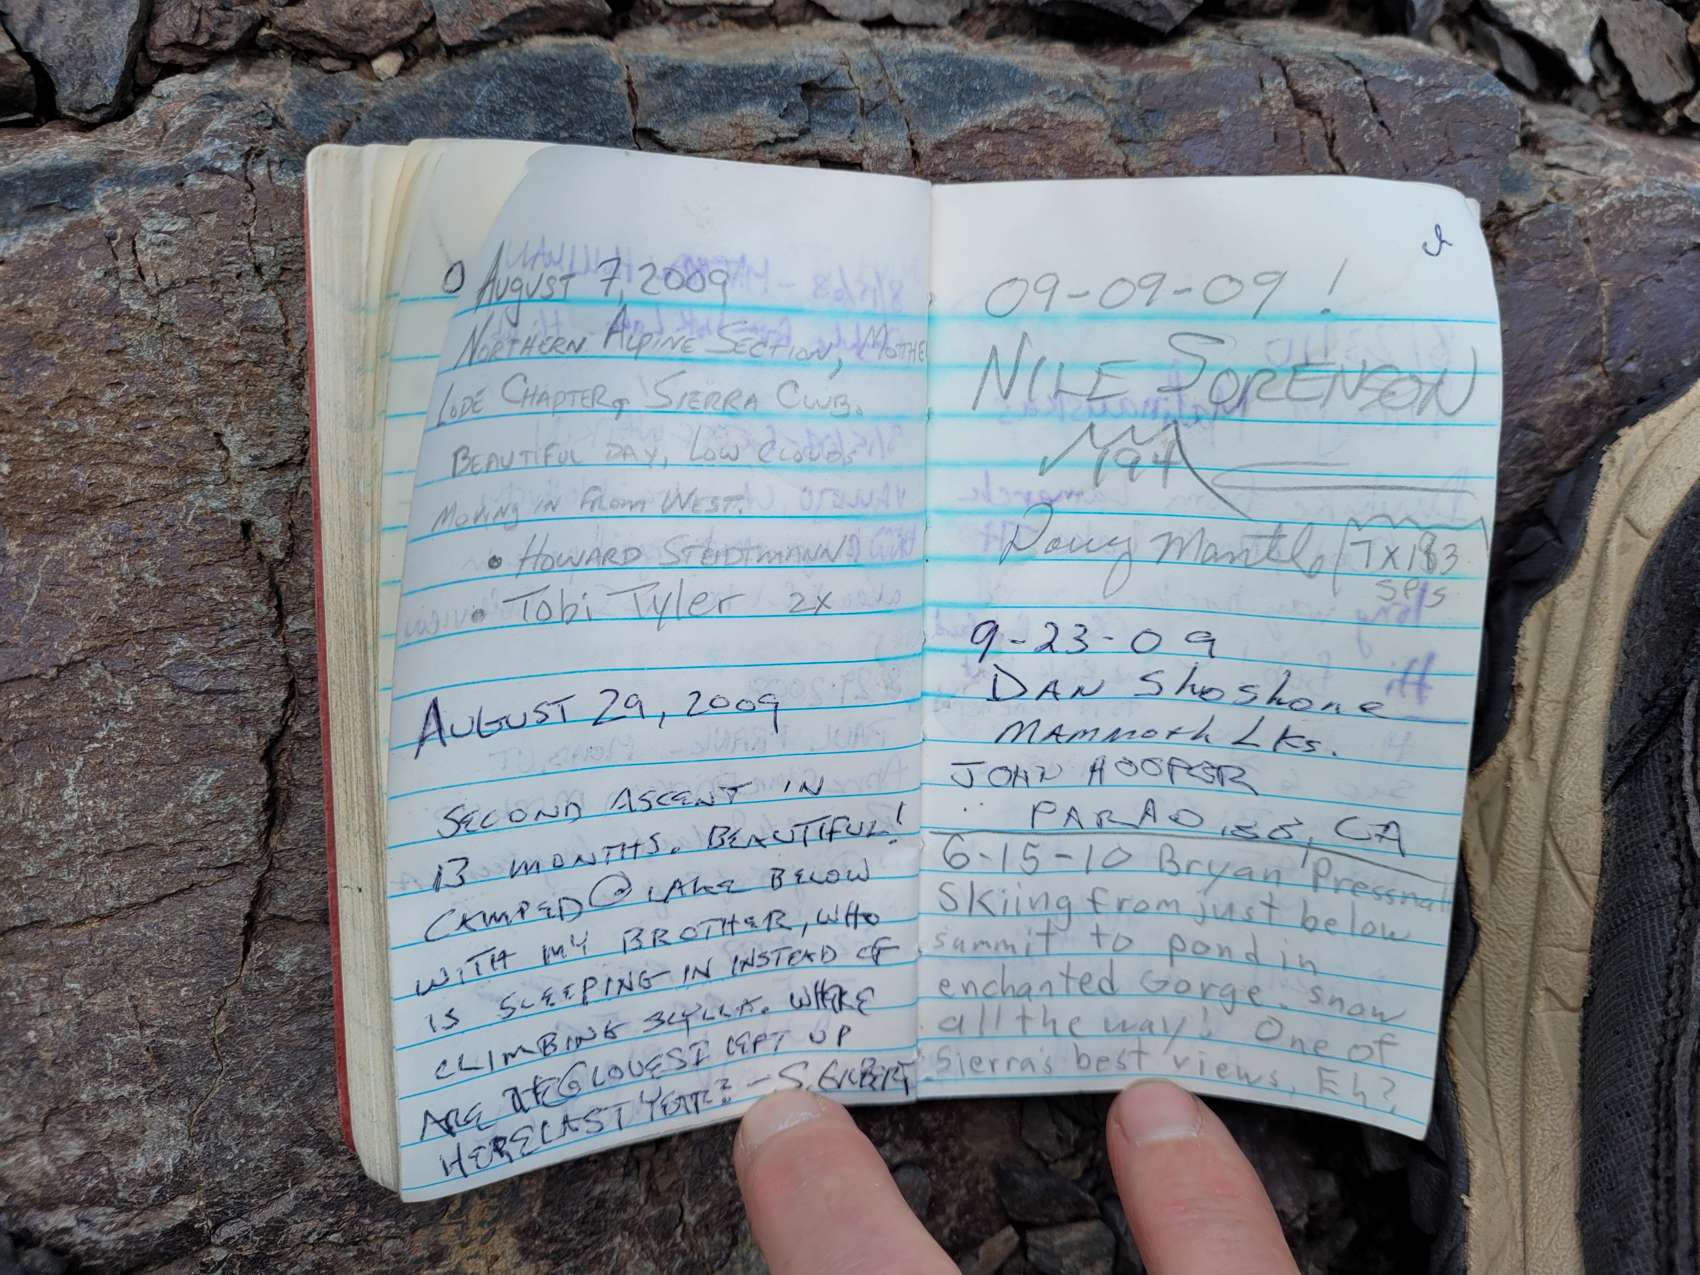 August 7, 2009
Northern Alpine Section, Mothe
Lode Chapter, Sierra Club.
Beautiful day, Low clouds
moving in from West.
• Howard Steidtmann
• Tobi Tyler 2x
August 29, 2009
Second ascent in
13 months. Beautiful!
Camped @ lake below
with my brother, who
is sleeping in instead of
climbing Scylla. Where
are the gloves I left up
here last year? - S. Gilbert
09-09-09!
Nile Sorenson
194
Doug Mantle TX183
SPS
9-23-09
Dan Shoshone
Mammoth Lks.
John Hooper
Paradise, CA
6-15-10 Bryan Pressnall
Skiing from just below
summit to pond in
enchanted Gorge. snow
all the way! One of
Sierra's best views, Eh?